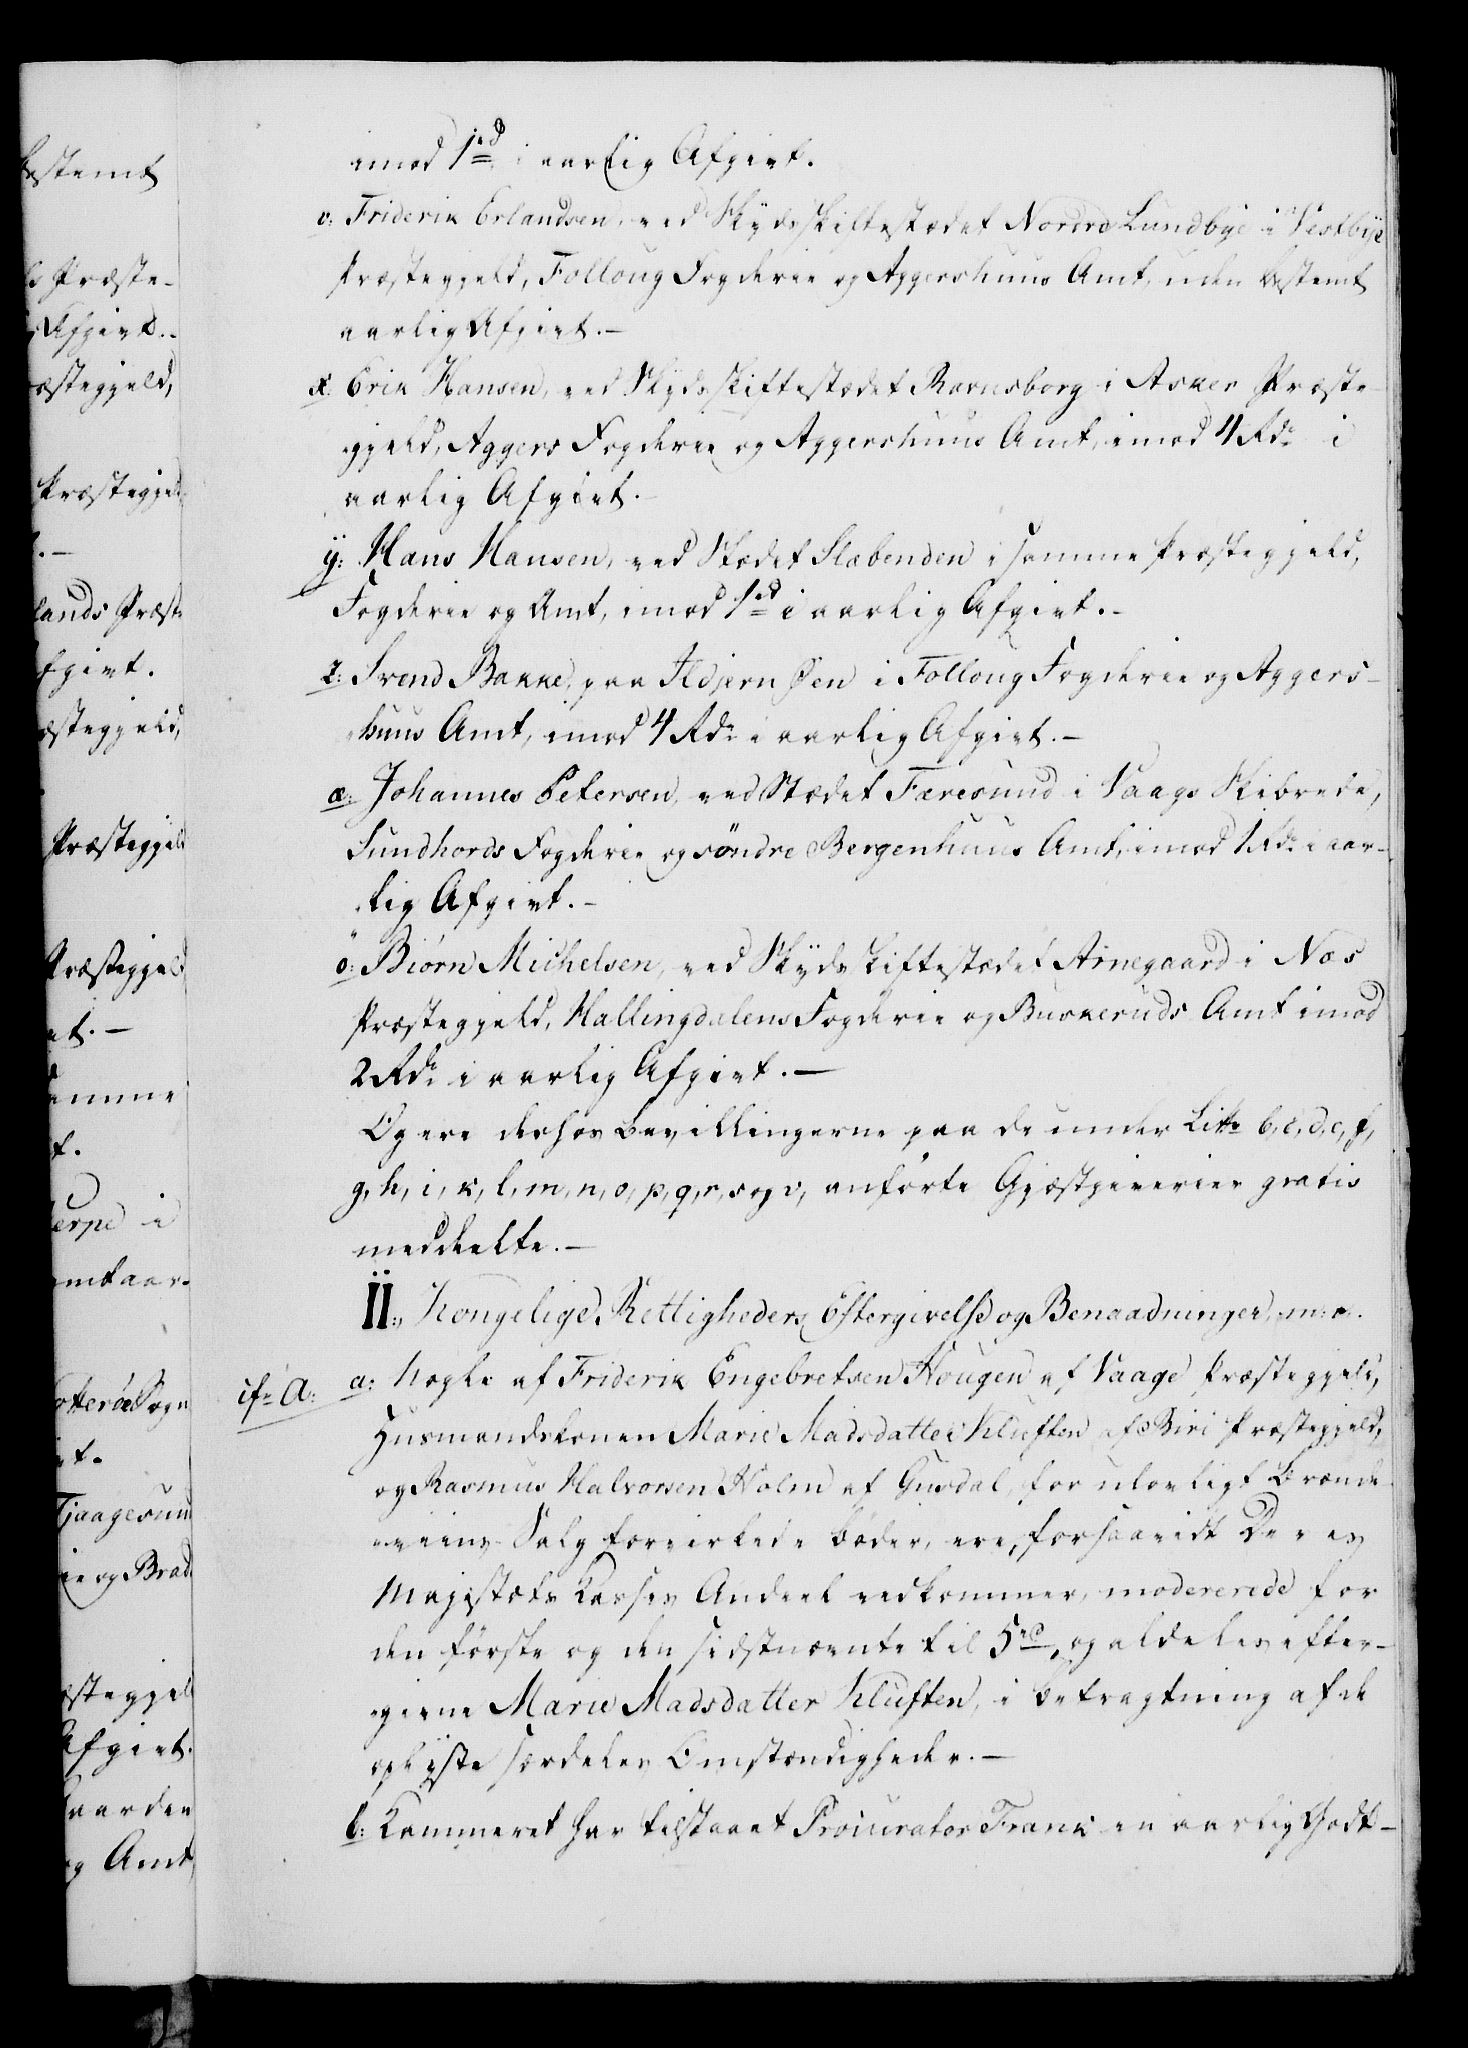 imod 1 rd i aarlig Afgivt.
v: Friderik Erlandsen, ved Skydsskiftestædet Nordre Lundbye i Vestbye
Præstegjeld, Folloug Fogderie og Aggershuus Amt, uden bestemt
aarlig Afgivt.-
x: Erik Hansen, ved Skydsskiftestædet Ravnsborg i Asker Præste-
gjeld, Aggers Fogderie og Aggershuus Amt, imod 4 Rdr i
aarlig Afgivt.-
ÿ: Hans Hansen, ved Stædet Slæbenden i samme Præstegjeld,
Fogderie og Amt, imod 1 rd i aarlig Afgivt.-
z: Svend Bakke, paa Ildjern Øen i Folloug Fogderie og Aggers-
huus Amt, imod 4 Rdr i aarlig Afgivt.-
æ: Johannes Petersen, ved Stædet Færesund i Vaags Skibrede,
Sundhords Fogderie og söndre Bergenhuus Amt, imod 1 Rdr i aar-
lig Afgivt.-
ö: Biørn Michelsen, ved Skydsskiftestædet Arnegaard i Næs
Præstegjeld, Hallingdalens Fogderie og Buskeruds Amt imod
2 Rdr i aarlig Afgivt.-
Og ere derhos Bevillingerne paa de under Litr b, c, d, e, f,
g, h, i, k, l, m, n, o, p, q, r, s og v, anførte Gjæstgiverier gratis
meddeelte.-
II:, Kongelige Rettigheders Eftergivelse og Benaadninger, m: m.
cfr A: a: Nogle af Friderik Engebretsen Hougen af Vaage Præstegjeld,
Huusmandskonen Marie Madsdatter Kluften af Biri Præstegjeld,
og Rasmus Halvorsen Holm af Gusdal, for ulovligt Brænde-
viins Salg forvirkede Bøder, ere, forsaavidt Deres
Majestæts Kasses Andeel vedkommer, modererede for
den første og den sidstnævnte til 5 rd, og aldeles efter-
givne Marie Madsdatter Kluften, i Betragtning af de
oplyste særdeles Omstændigheder.-
b: Kammeret har tilstaaet Procurator Frank en aarlig Godt-